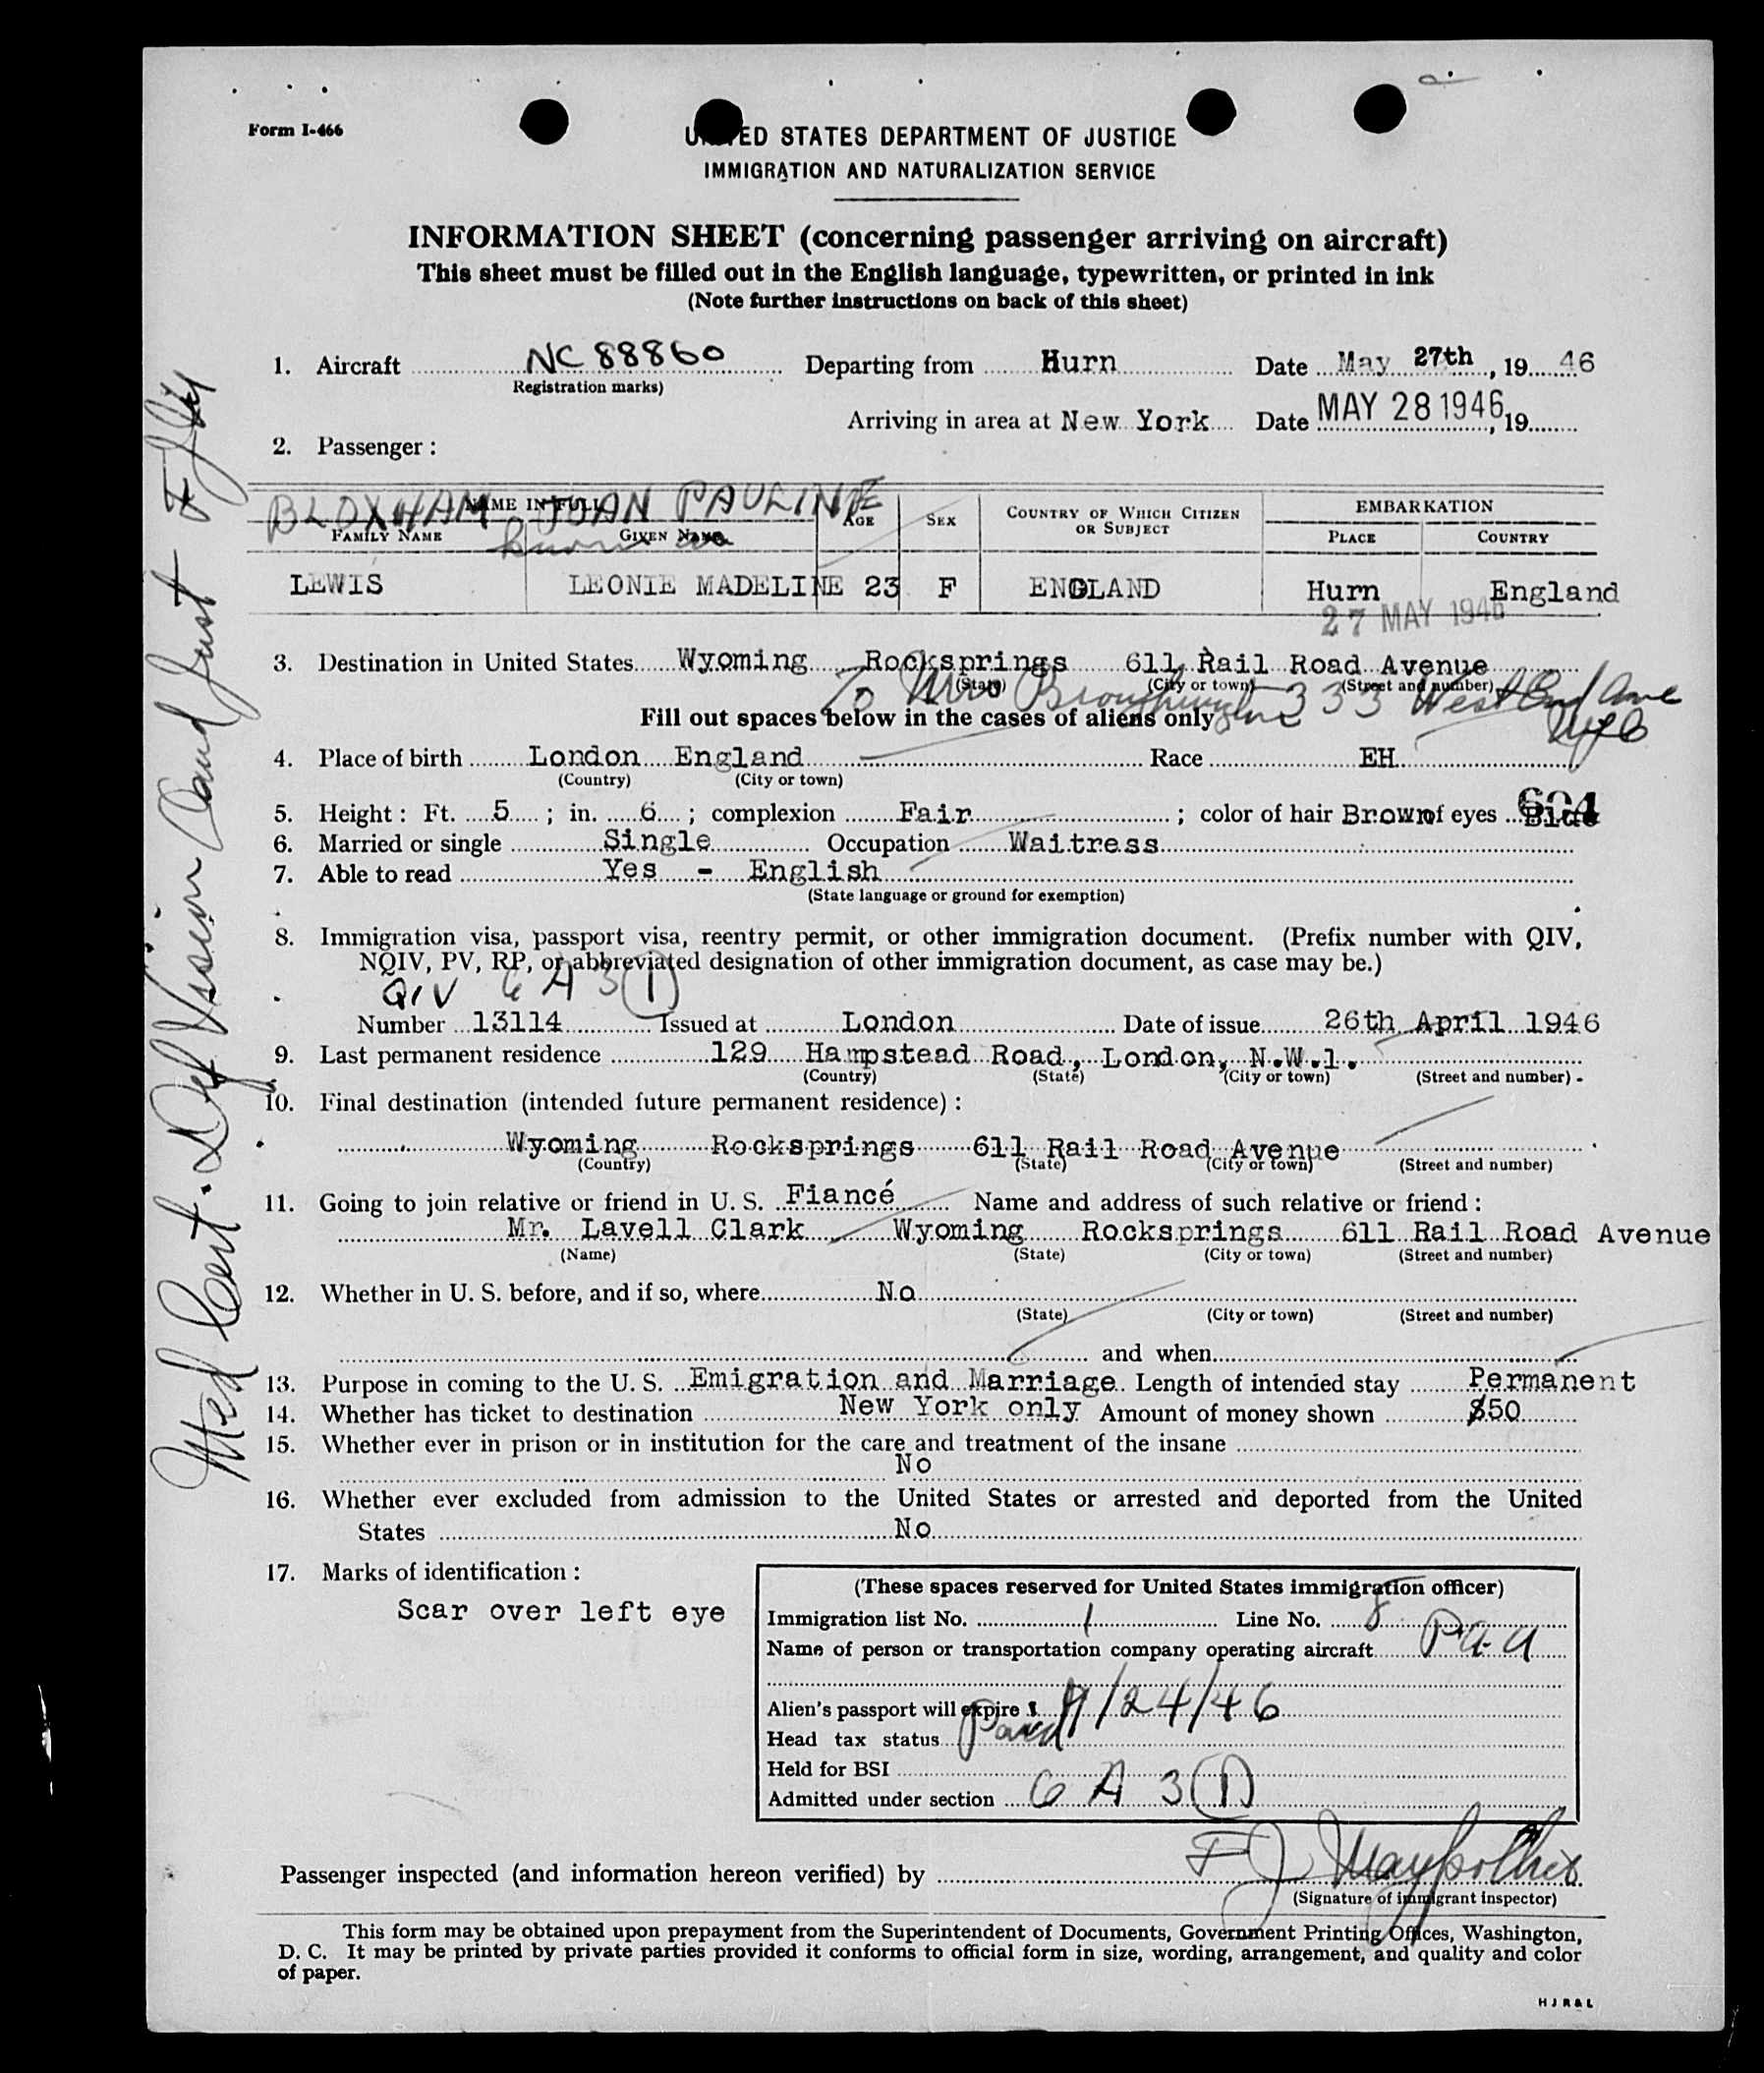 Form I-466
UNITED STATES DEPARTMENT OF JUSTICE
IMMIGRATION AND NATURALIZATION SERVICE
INFORMATION SHEET (concerning passenger arriving on aircraft)
This sheet must be filled out in the English language, typewritten, or printed in ink
(Note further instructions on back of this sheet)
1. Aircraft NC 88860 Departing from Hurn Date May 27th, 1946
Registration marks)
Arriving in area at New York Date MAY 28 1946, 19
2. Passenger :
BLOXHAM JOAN PAULINE
NAME IN FULL AGE SEX COUNTRY OF WHICH CITIZEN OR SUBJECT EMBARKATION
FAMILY NAME GIVEN NAME PLACE COUNTRY
known as
LEWIS LEONIE MADELINE 23 F ENGLAND Hurn England
27 MAY 1946
3. Destination in United States Wyoming Rocksprings 611 Rail Road Avenue
(State) (City or town) (Street and number)
To Mrs 333 West End Ave
NYC
Fill out spaces below in the cases of aliens only
4. Place of birth London England Race EH
(Country) (City or town)
5. Height : Ft. 5 ; in. 6 ; complexion Fair ; color of hair Brown of eyes Blue
604
6. Married or single Single Occupation Waitress
7. Able to read Yes - English
(State language or ground for exemption)
8. Immigration visa, passport visa, reentry permit, or other immigration document. (Prefix number with QIV,
NQIV, PV, RP, or abbreviated designation of other immigration document, as case may be.)
QIV 6 A 3 (1)
Number 13114 Issued at London Date of issue 26th April 1946
9. Last permanent residence 129 Hampstead Road, London, N.W.1.
(Country) (State) (City or town) (Street and number)
10. Final destination (intended future permanent residence) :
Wyoming Rocksprings 611 Rail Road Avenue
(Country) (State) (City or town) (Street and number)
11. Going to join relative or friend in U. S. Fiancé Name and address of such relative or friend :
Mr. Lavell Clark Wyoming Rocksprings 611 Rail Road Avenue
(Name) (State) (City or town) (Street and number)
12. Whether in U. S. before, and if so, where No
(State) (City or town) (Street and number)
and when
13. Purpose in coming to the U. S. Emigration and Marriage Length of intended stay Permanent
14. Whether has ticket to destination New York only Amount of money shown $50
15. Whether ever in prison or in institution for the care and treatment of the insane
No
16. Whether ever excluded from admission to the United States or arrested and deported from the United
States No
17. Marks of identification :
Scar over left eye
(These spaces reserved for United States immigration officer)
Immigration list No. 1 Line No. 8
Name of person or transportation company operating aircraft P.a.a
Alien's passport will expire 9/24/46
Head tax status Paid
Held for BSI
Admitted under section 6 A 3 (1)
Passenger inspected (and information hereon verified) by F J
(Signature of immigrant inspector)
This form may be obtained upon prepayment from the Superintendent of Documents, Government Printing Offices, Washington,
D. C. It may be printed by private parties provided it conforms to official form in size, wording, arrangement, and quality and color
of paper.
H J R & L
Med Cert. Def Vision